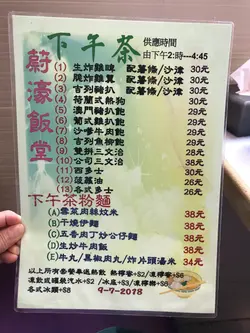 下午茶
供應時間
由下午2:時---4:45
蔚濠飯堂
(1) 生炸雞啤 配薯條/沙津 30元
(2) 脆炸雞翼 配薯條/沙津 30元
(3) 吉列豬扒 配薯條/沙津 30元
(4) 荷蘭式熱狗 30元
(5) 澳門豬扒飽 30元
(6) 葡式雞扒飽 30元
(7) 沙嗲牛肉飽 30元
(8) 吉列魚柳飽 30元
(9) 雙拼三文治 28元
(10) 公司三文治 38元
(11) 西多士 30元
(12) 菠蘿油 26元
(13) 各式多士 26元
下午茶粉麵
(A) 雪菜肉絲炆米 38元
(B) 干燒伊麵 38元
(C) 五香肉丁炒公仔麵 38元
(D) 生炒牛肉飯 38元
(E) 牛丸/墨魚丸/炸片頭湯米 34元
以上所有套餐奉送熱飲 熱檸蜜+S2/凍檸蜜+S6
凍飲或罐裝汽水+S2/冰底+S3/凍檸樂+S6
各式冰類+S8
9-7-2018